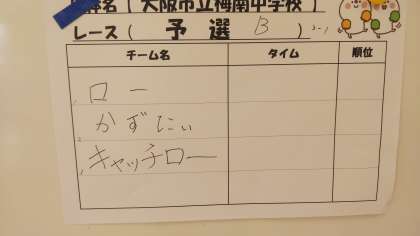 体名〔大阪市立梅南中学校〕
レース( 予選 B )
チーム名 タイム 順位
ロー
かずにい
キャッチロー